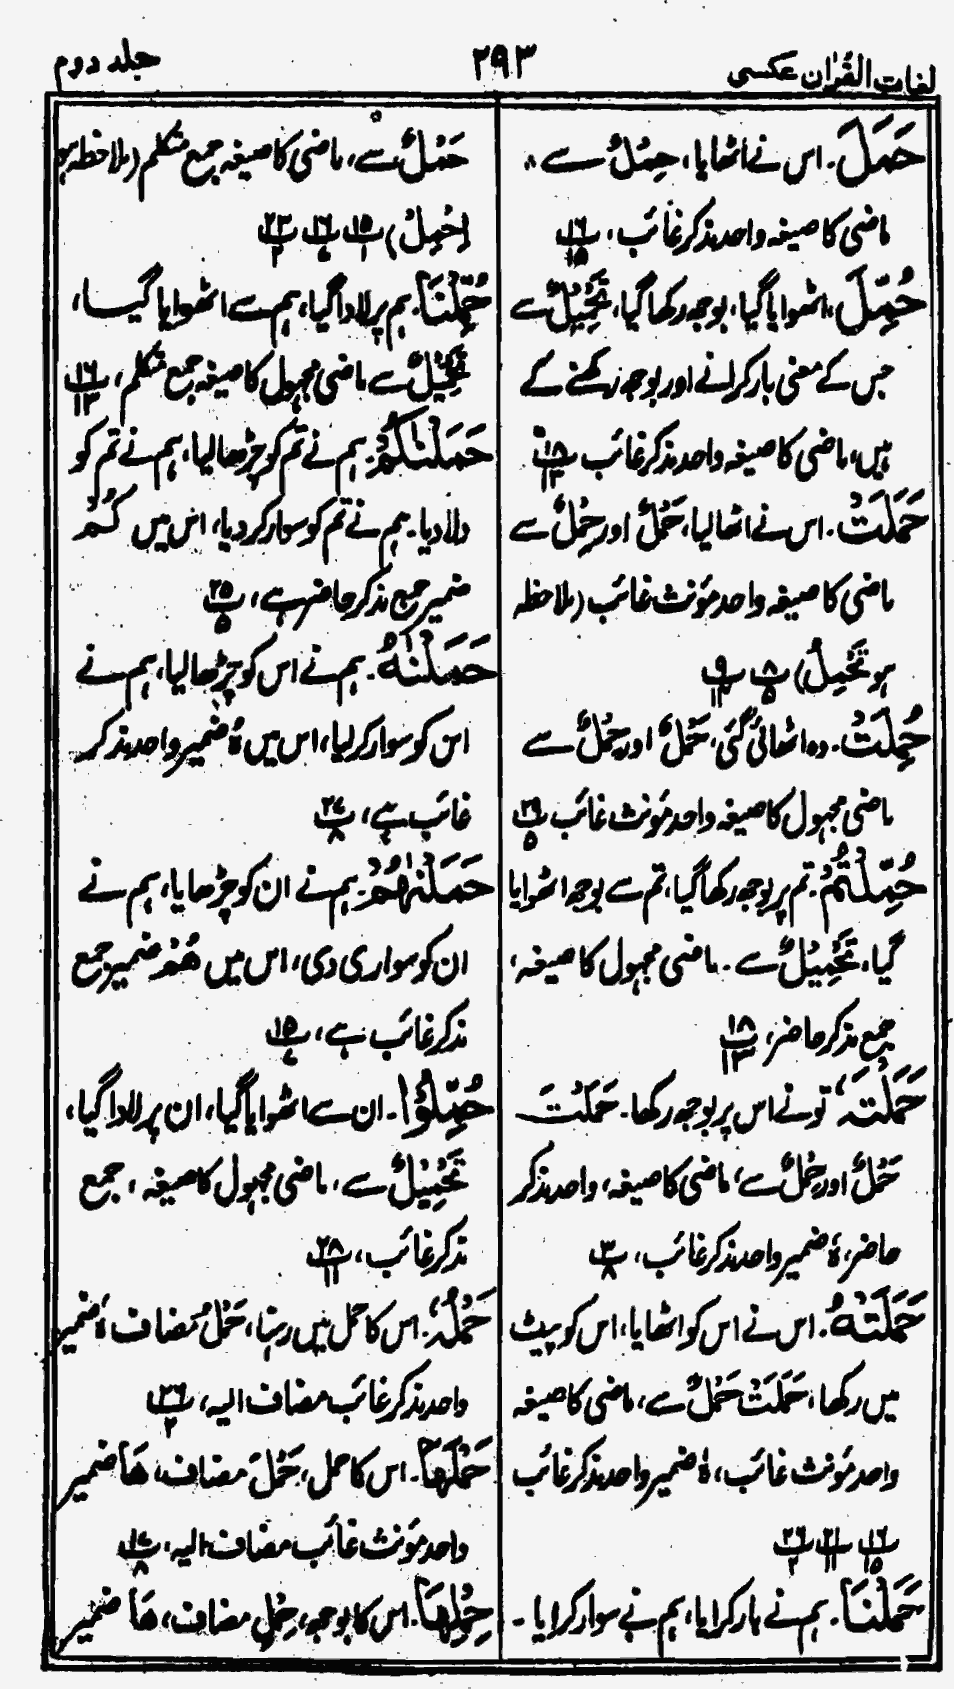 لغات القرآن عکسی
۲۹۳
جلد دوم
حَمَلَ۔ اس نے اٹھایا، حِمْلٌ سے
ماضی کا صیغہ واحد مذکر غائب، ۱۶/۱۵
حُمِّلَ، اٹھوایا گیا، بوجھ رکھا گیا، تَحْمِیْلٌ سے
جس کے معنی بار کرانے اور بوجھ رکھنے کے
ہیں، ماضی کا صیغہ واحد مذکر غائب ۱۸/۱۳
حَمَلَتْ۔ اس نے اٹھا لیا، حَمْلٌ اور حِمْلٌ سے
ماضی کا صیغہ واحد مؤنث غائب (ملاحظہ
ہو تَحْمِلُ) ۸/۵ ۹/۱۲
حُمِلَتْ۔ وہ اٹھائی گئی، حَمْلٌ اور حِمْلٌ سے
ماضی مجہول کا صیغہ واحد مؤنث غائب ۲۹/۵
حُمِّلْتُمْ۔ تم پر بوجھ رکھا گیا، تم سے بوجھ اٹھوایا
گیا، تَحْمِیْلٌ سے۔ ماضی مجہول کا صیغہ،
جمع مذکر حاضر، ۱۸/۱۳
حَمَلْتَہٗ، تو نے اس پر بوجھ رکھا۔ حَمَلْتَ
حَمْلٌ اور حِمْلٌ سے، ماضی کا صیغہ، واحد مذکر
حاضر، ہٗ ضمیر واحد مذکر غائب، ۳/۸
حَمَلَتْہُ۔ اس نے اس کو اٹھایا، اس کو پیٹ
میں رکھا، حَمَلَتْ حَمْلٌ سے، ماضی کا صیغہ
واحد مؤنث غائب، ہٗ ضمیر واحد مذکر غائب
۱۶/۱۵ ۲۱/۱۱ ۲۶/۲
حَمَلْنَا۔ ہم نے بار کرایا، ہم نے سوار کرایا۔
حَمْلٌ سے، ماضی کا صیغہ جمع متکلم (ملاحظہ ہو
اِحْمِلْ) ۱۵/۱ ۱۶/۷ ۲۳/۲
حُمِّلْنَا۔ ہم پر لادا گیا، ہم سے اٹھوایا گیا،
تَحْمِیْلٌ سے ماضی مجہول کا صیغہ جمع متکلم، ۱۶/۱۳
حَمَلْنٰکُمْ۔ ہم نے تم کو چڑھا لیا، ہم نے تم کو
دلا دیا۔ ہم نے تم کو سوار کر دیا، اس میں کُمْ
ضمیر جمع مذکر حاضر ہے، ۲۵/۵
حَمَلْنٰہُ۔ ہم نے اس کو چڑھا لیا، ہم نے
اس کو سوار کر لیا، اس میں ہٗ ضمیر واحد مذکر
غائب ہے، ۲۷/۸
حَمَلْنٰہُمْ۔ ہم نے ان کو چڑھایا، ہم نے
ان کو سواری دی، اس میں ھُمْ ضمیر جمع
مذکر غائب ہے، ۱۵/۷
حُمِّلُوْا۔ ان سے اٹھوایا گیا، ان پر لادا گیا،
تَحْمِیْلٌ سے، ماضی مجہول کا صیغہ، جمع
مذکر غائب، ۲۸/۱۱
حَمْلُہٗ۔ اس کا حمل میں رہنا، حَمْلُ مضاف، ہٗ ضمیر
واحد مذکر غائب مضاف الیہ، ۲۶/۲
حَمْلَہَا۔ اس کا حمل، حَمْلَ مضاف، ھَا ضمیر
واحد مؤنث غائب مضاف الیہ، ۱۷/۸
حِمْلِہَا۔ اس کا بوجھ، حِمْلِ مضاف، ھَا ضمیر